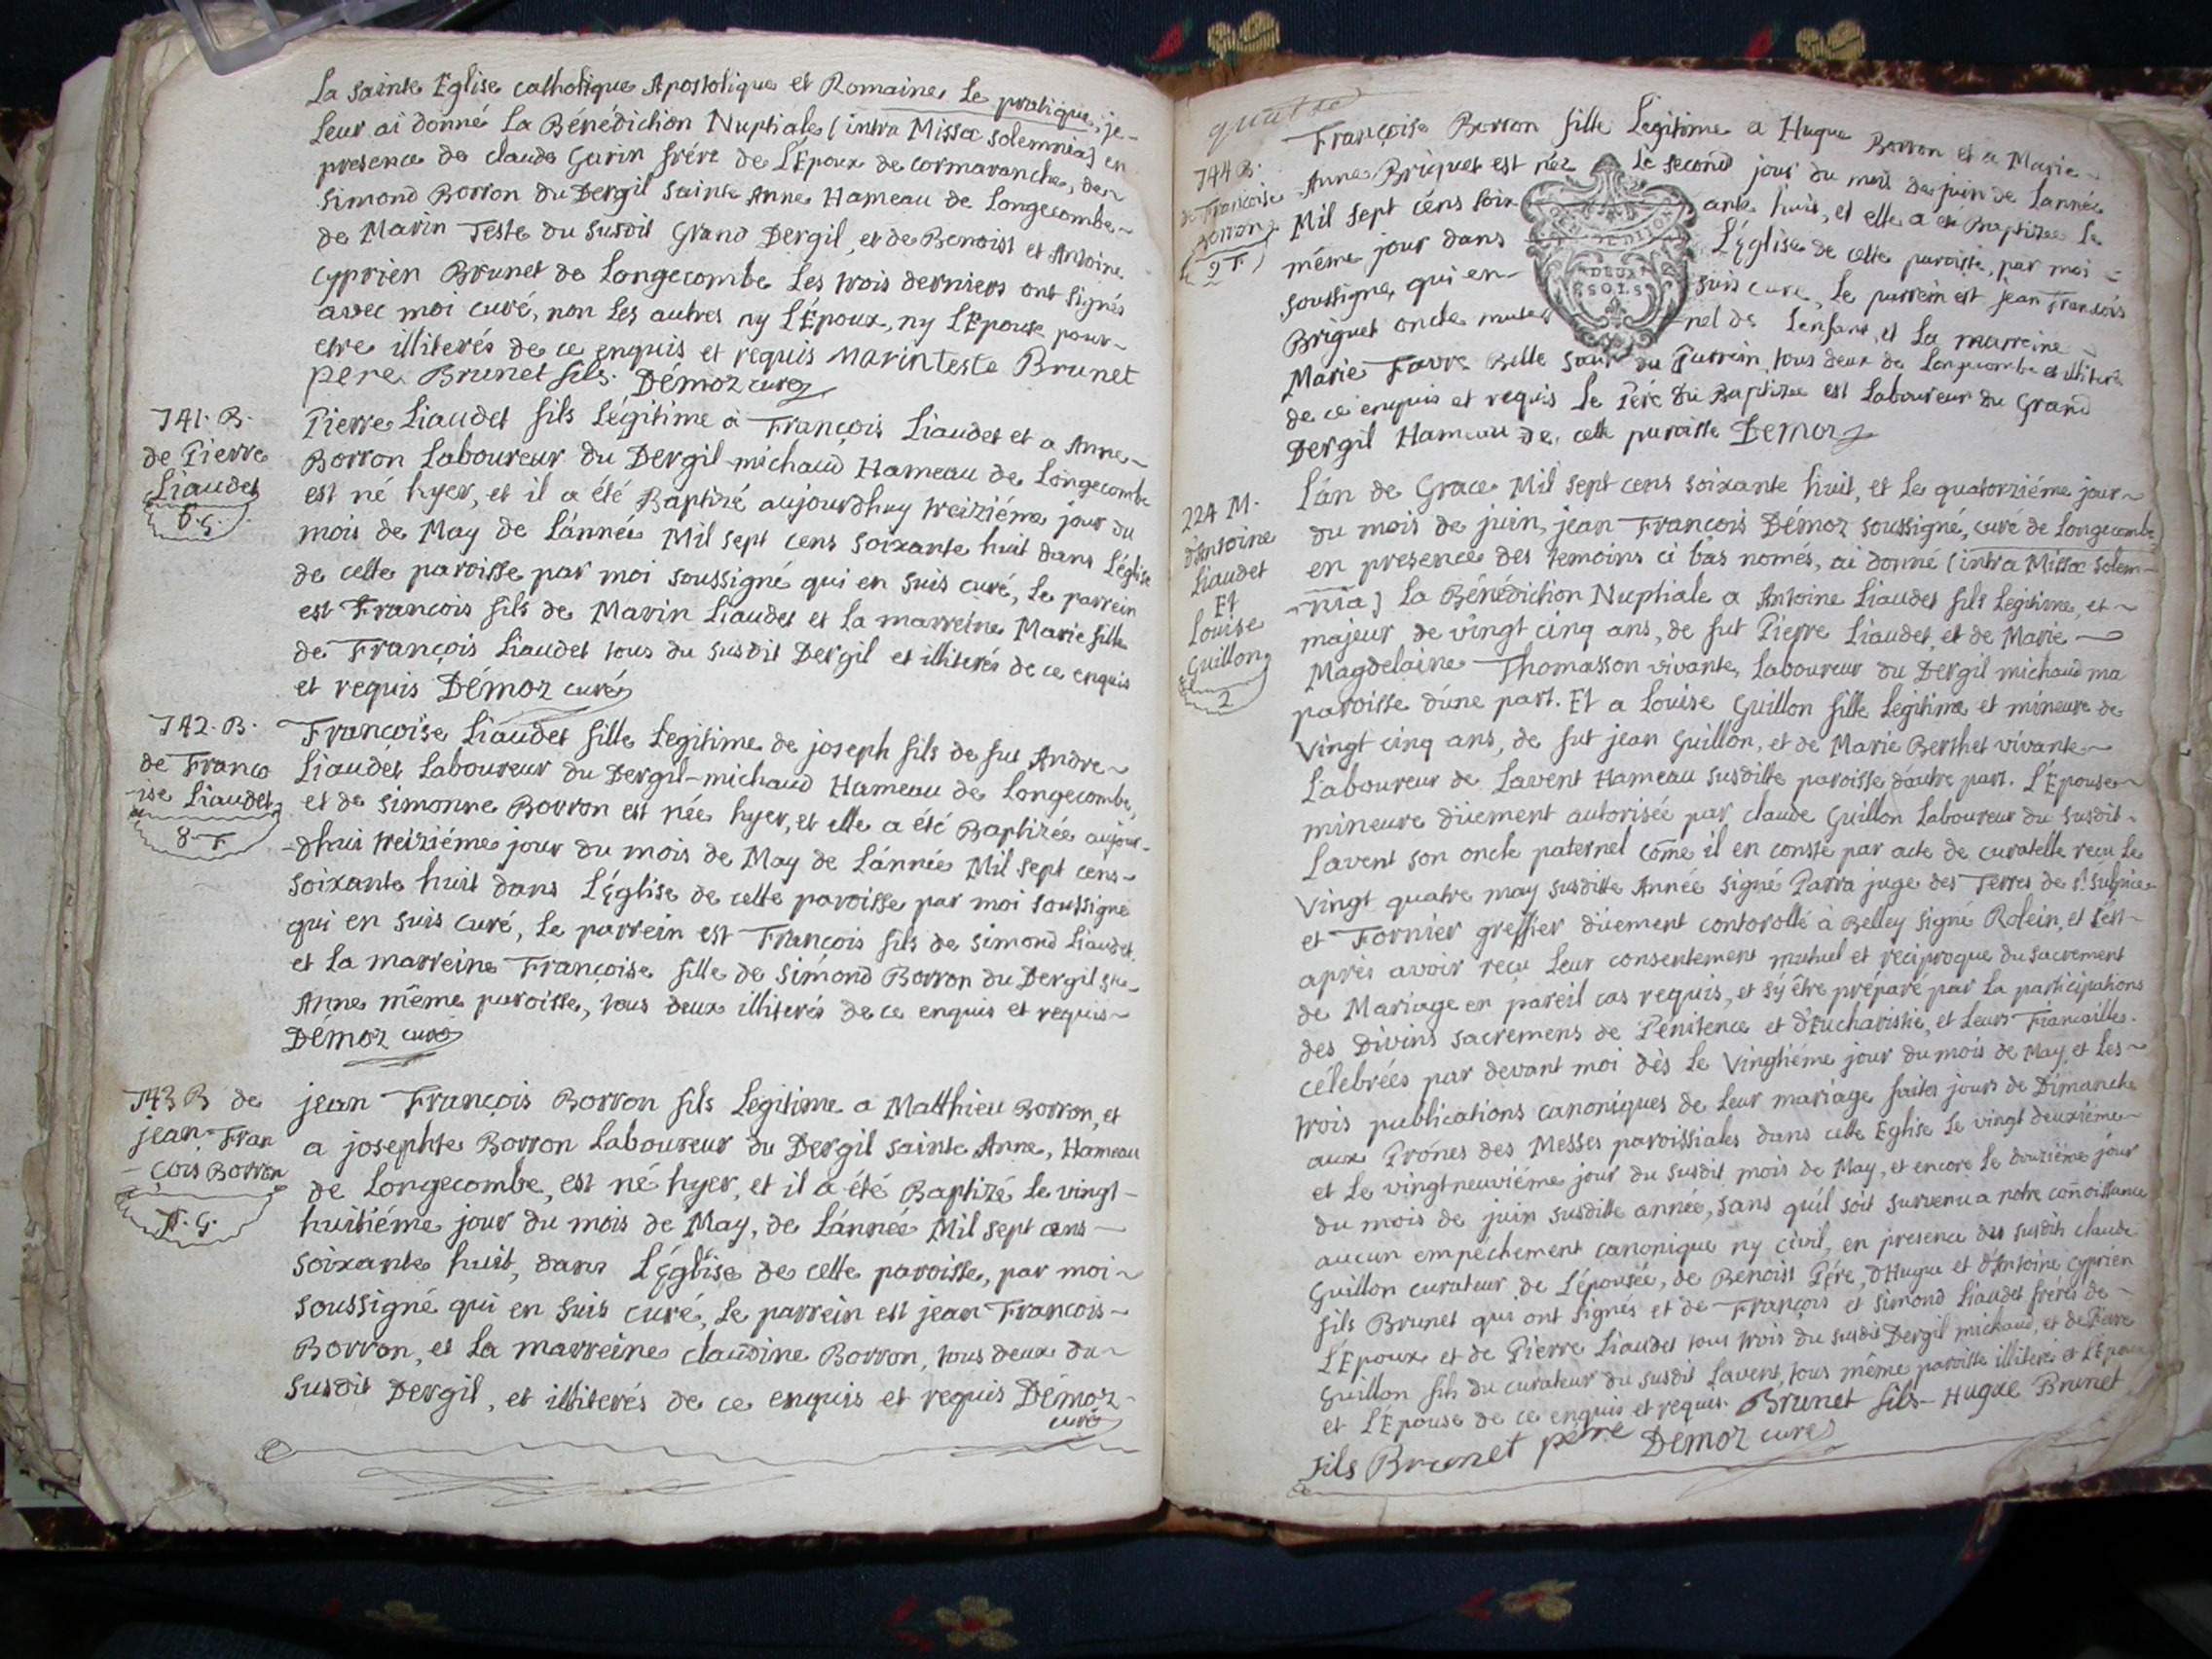 La sainte Eglise catholique Apostolique et Romaine Le pratique, je
Leur ai donné La Bénédiction Nuptiale (intra Missæ solemnia) en
presence de claude Garin frére de L'Epoux de cormaranche, de
Simond Borron du Dergil sainte Anne Hameau de Longecombe
de Marin Teste du susdit Grand Dergil, et de Benoist et Antoine
Cyprien Brunet de Longecombe Les trois derniers ont signés
avec moi curé, non Les autres ny L'Époux, ny L'Epouse pour
etre illiterés de ce enquis et requis Marin Teste Brunet
pere Brunet fils. Démoz curé
741. B.
de Pierre
Liaudet
6. G.
Pierre Liaudet fils Légitime à François Liaudet et a Anne
Borron Laboureur du Dergil-michaud Hameau de Longecombe
est né hyer, et il a été Baptizé aujourdhuy treiziéme jour du
mois de May de L'année Mil sept cens soixante huit dans L'église
de cette paroisse par moi soussigné qui en suis curé, Le parrein
est François fils de Marin Liaudet et La marreine Marie fille
de François Liaudet tous du susdit Dergil et illiterés de ce enquis
et requis Démoz curé
742. B.
de Franco
-ise Liaudet
8 F
Françoise Liaudet fille Legitime de joseph fils de fut Andre
Liaudet Laboureur du Dergil-michaud Hameau de Longecombe,
et de simonne Borron est née hyer, et elle a été Baptizée aujour-
-dhui treiziéme jour du mois de May de L'année Mil sept cens
soixante huit dans L'Église de cette paroisse par moi soussigné
qui en suis curé, Le parrein est François fils de Simond Liaudet
et La marreine Françoise fille de Simond Borron du Dergil ste
Anne même paroisse, tous deux illiterés de ce enquis et requis
Démoz curé
743 B de
jean-Fran
-çois Borron
7. G.
jean François Borron fils Legitime a Matthieu Borron, et
a josephte Borron Laboureur du Dergil sainte Anne, Hameau
de Longecombe, est né hyer, et il a été Baptizé Le vingt-
huitiéme jour du mois de May, de L'année Mil sept cens
soixante huit, dans L'Église de cette paroisse, par moi
soussigné qui en suis curé, Le parrein est jean François
Borron, et La marreine claudine Borron, tous deux du
susdit Dergil, et illiterés de ce enquis et requis Démoz
curé
quatre
744 B.
de Francoise
Borron
9 F
Françoise Borron fille Legitime a Hugue Borron et a Marie
Anne Briquet est née Le second jour du mois de juin de L'année
Mil sept cens soix ante huit, et elle a été Baptizée Le
même jour dans L'Église de cette paroisse, par moi
soussigné, qui en suis curé, Le parrein est jean François
Briquet oncle mater nel de L'enfant, et La marreine
Marie Favre Belle sœur du Parrein, tous deux de Longecombe et illiterés
de ce enquis et requis Le Pére du Baptizée est Laboureur du Grand
Dergil Hameau de cette paroisse Demoz
DEUX
SOLS
224 M.
d'Antoine
Liaudet
Et
Louise
Guillon
2
L'an de Grace Mil sept cens soixante huit, et Le quatorziéme jour
du mois de juin, jean François Démoz soussigné, curé de Longecombe
en presence des temoins ci bas només, ai donné (intra Missæ solem-
-nia) La Bénédiction Nuptiale a Antoine Liaudet fils Legitime, et
majeur de vingt cinq ans, de fut Pierre Liaudet et de Marie
Magdelaine Thomasson vivante, Laboureur du Dergil michaud ma
paroisse d'une part. Et a Louise Guillon fille Legitime et mineure de
vingt cinq ans, de fut jean Guillon, et de Marie Berthet vivante
Laboureur de Lavent Hameau susditte paroisse d'autre part. L'Epouse
mineure düement autorisée par claude Guillon Laboureur du susdit
Lavent son oncle paternel côme il en conste par acte de curatelle reçu Le
vingt quatre may susditte Année signé Parra juge des Terres de st sulpice
et Fornier greffier düement contorollé à Belley signé Rolein, et s'est
après avoir reçu Leur consentement mutuel et reciproque du sacrement
de Mariage en pareil cas requis, et s'y être préparé par La participations
des Divins sacremens de Pénitence et d'Eucharistie, et Leurs Fiancailles
célebrées par devant moi dès Le vingtiéme jour du mois de May, et Les
trois publications canoniques de Leur mariage faites jours de Dimanche
aux Prônes des Messes paroissiales dans cette Eglise Le vingt deuxiéme
et Le vingtneuviéme jour du susdit mois de May, et encore Le douziéme jour
du mois de juin susditte année, sans qu'il soit survenu a notre conoissance
aucun empéchement canonique ny civil, en presence des susdits claude
Guillon curateur de L'épousée, de Benoist Pére, d'Hugue et d'Antoine Cyprien
fils Brunet qui ont signés et de François et Simond Liaudet fréres de
L'Epoux et de Pierre Liaudet tous trois du susdit Dergil michaud, et de Pierre
Guillon fils du curateur du susdit Lavent, tous même paroisse illiterés et L'Epoux
et L'Epouse de ce enquis et requis. Brunet fils - Hugue Brunet
fils Brunet pére Demoz curé